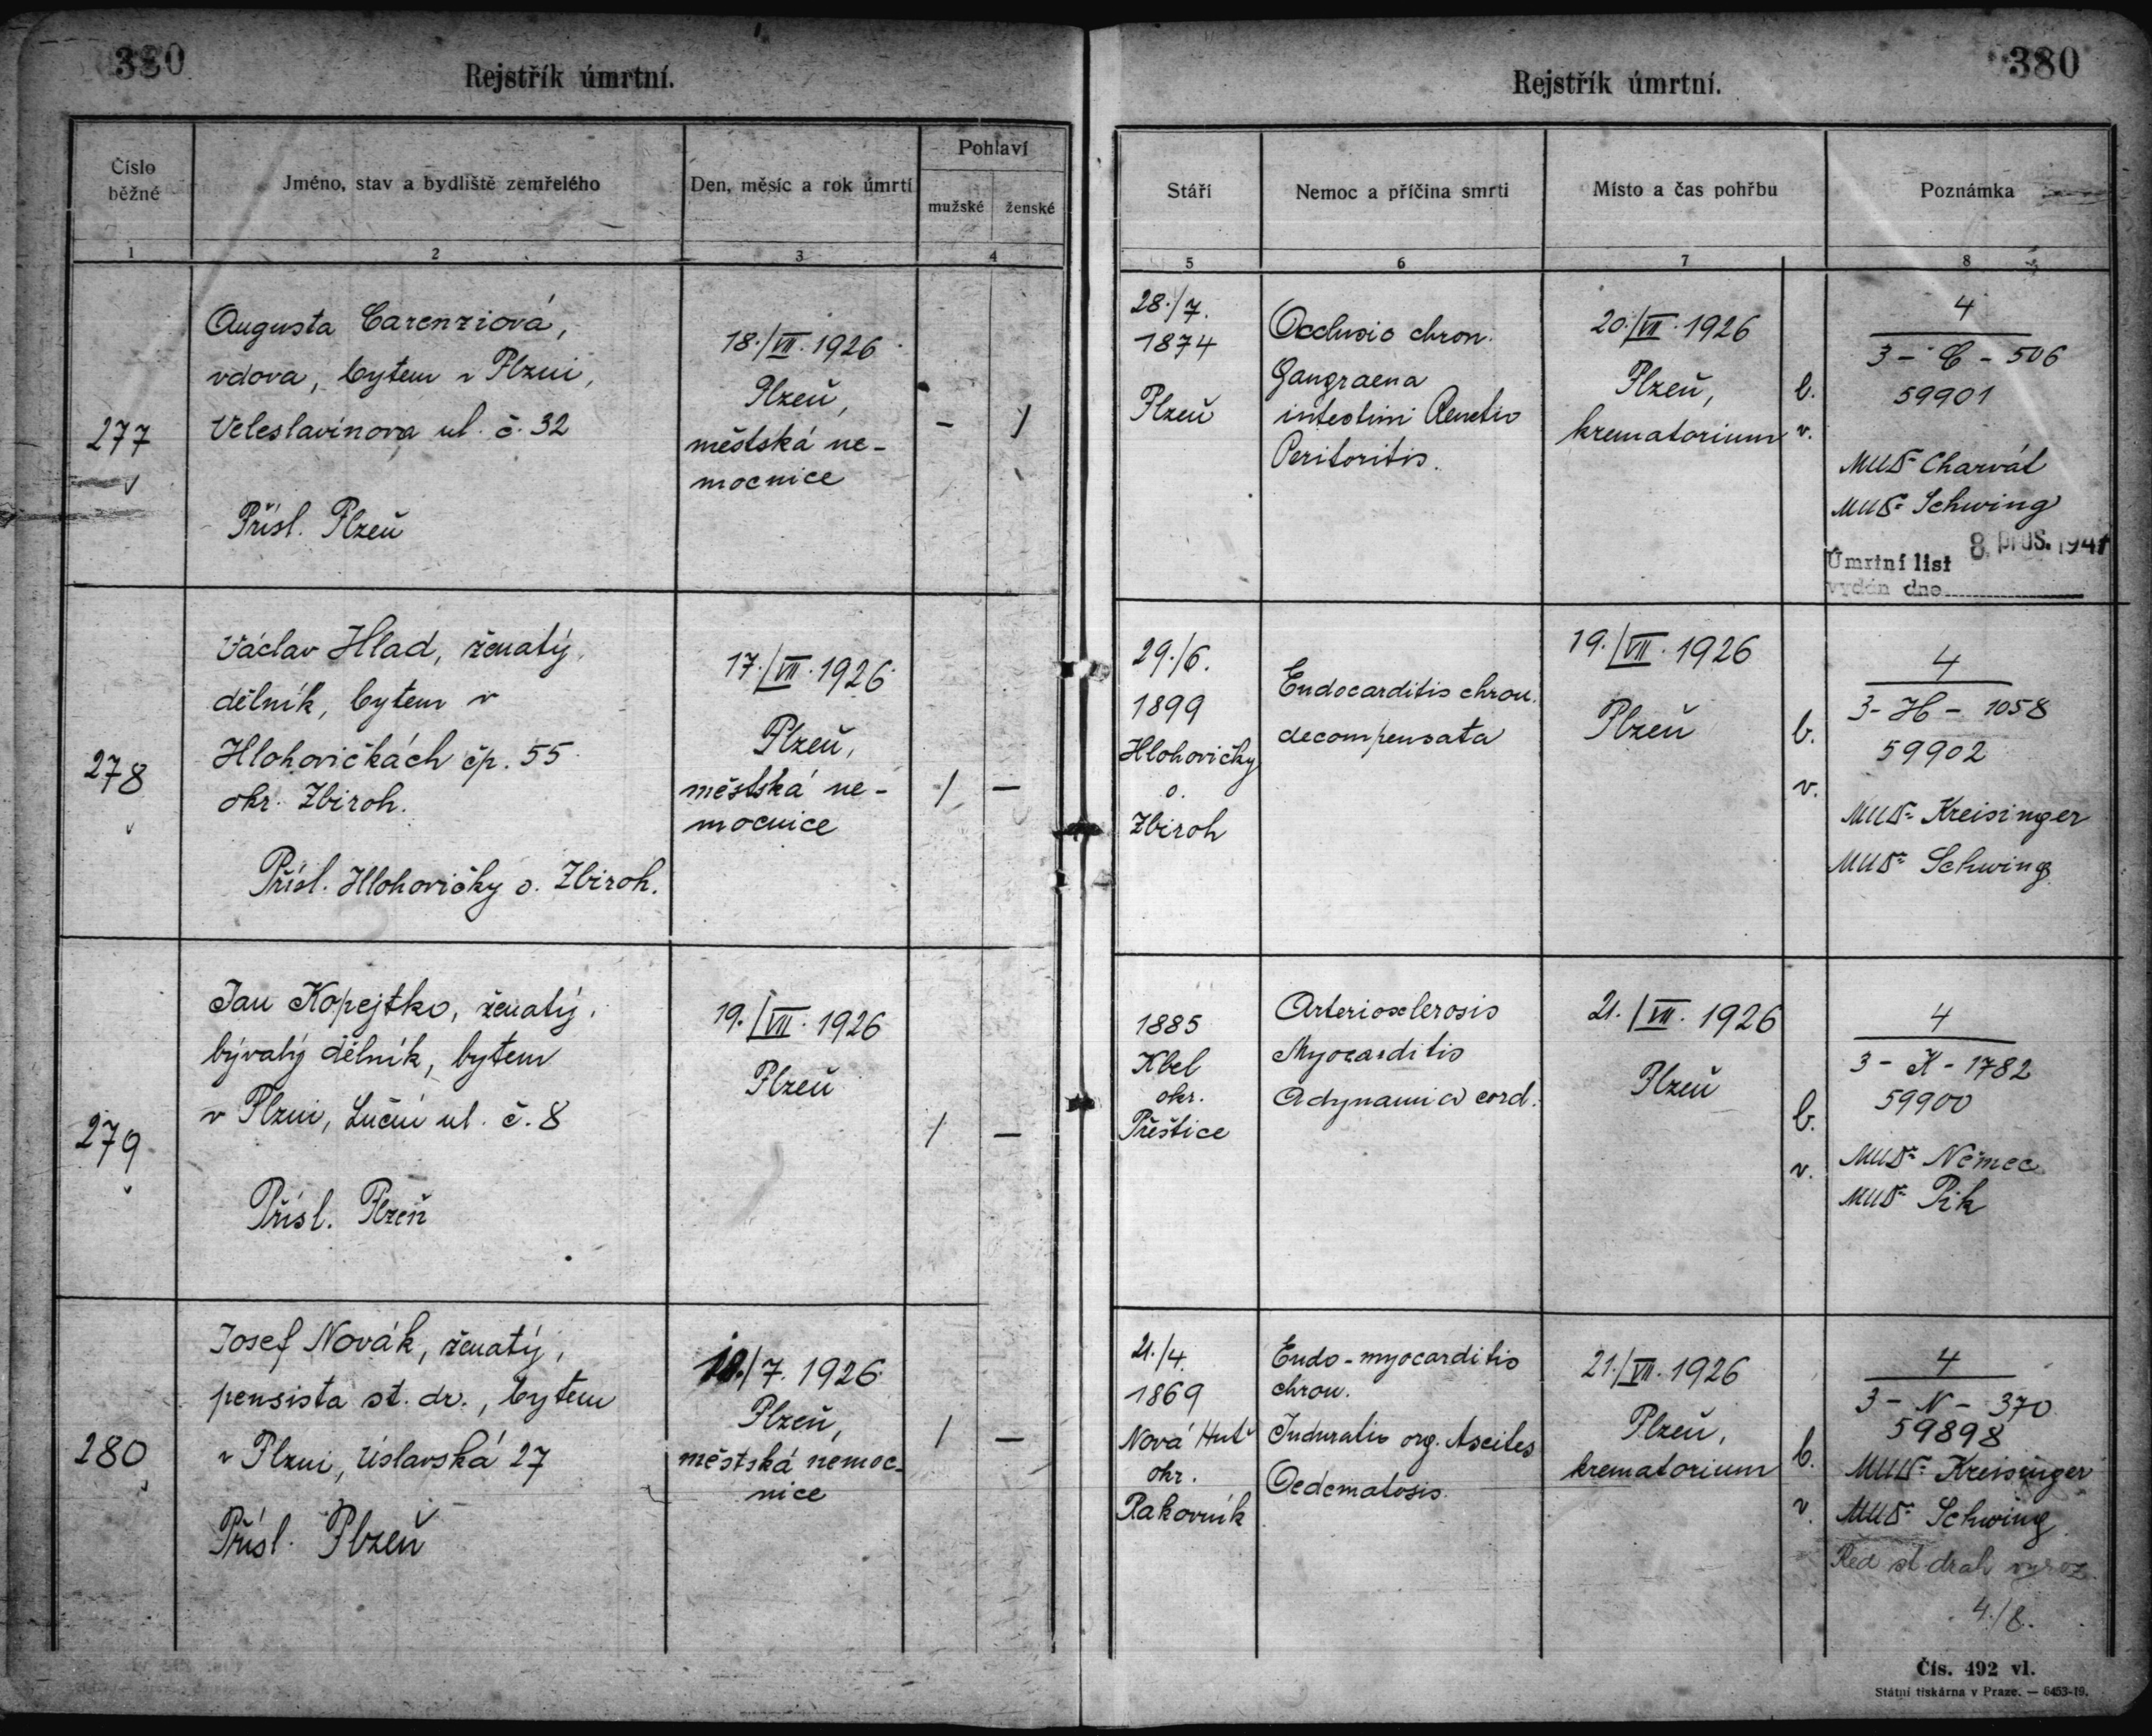 380
Rejstřík úmrtní.
Číslo běžné
Jméno, stav a bydliště zemřelého
Den, měsíc a rok úmrtí
Pohlaví
mužské
ženské
1
2
3
4
277
Augusta Carenziová,
vdova, bytem v Plzni,
Veleslavínova ul. č. 32
Přísl. Plzeň
18./VII. 1926
Plzeň,
městská ne-
mocnice
– /
278
Václav Hlad, ženatý,
dělník, bytem v
Hlohovičkách čp. 55
okr. Zbiroh.
Přísl. Hlohovičky o. Zbiroh.
17./VII. 1926
Plzeň,
městská ne-
mocnice
/ –
279
Jan Kopejtko, ženatý,
bývalý dělník, bytem
v Plzni, Luční ul. č. 8
Přísl. Plzeň
19./VII. 1926
Plzeň
/ –
280
Josef Novák, ženatý,
pensista st. dr., bytem
v Plzni, Úslavská 27
Přísl. Plzeň
/7. 1926
Plzeň,
městská nemoc-
nice
/ –
380
Rejstřík úmrtní.
Stáří
Nemoc a příčina smrti
Místo a čas pohřbu
Poznámka
5
6
7
8
28./7.
1874
Plzeň
Occlusio chron.
Gangraena
intestini
Peritoritis.
20./VII. 1926
Plzeň,
krematorium
b.
v.
4
3 - C - 506
59901
MUDr Charvát
MUDr Schwing
8. pros. 1941
Úmrtní list
vydán dne
29./6.
1899
Hlohovičky
o.
Zbiroh
Endocarditis chron.
decompensata
19./VII. 1926
Plzeň
b.
v.
4
3 - H - 1058
59902
MUDr Kreisinger
MUDr Schwing
1885
Kbel
okr.
Přeštice
Arteriosclerosis
Myocarditis
Adynamia cord.
21./VII. 1926
Plzeň
b.
v.
4
3 - K - 1782
59900
MUDr Němec
MUDr Pik
21./4.
1869
Nová Huť
okr.
Rakovník
Endo-myocarditis
chron.
Induratio org. Ascites
Oedematosis.
21./VII. 1926
Plzeň,
krematorium
b.
v.
4
3 - N - 370
59898
MUDr Kreisinger
MUDr Schwing
Řed st. drah vyroz.
4./8.
Čís. 492 vl.
Státní tiskárna v Praze. — 6453-19.